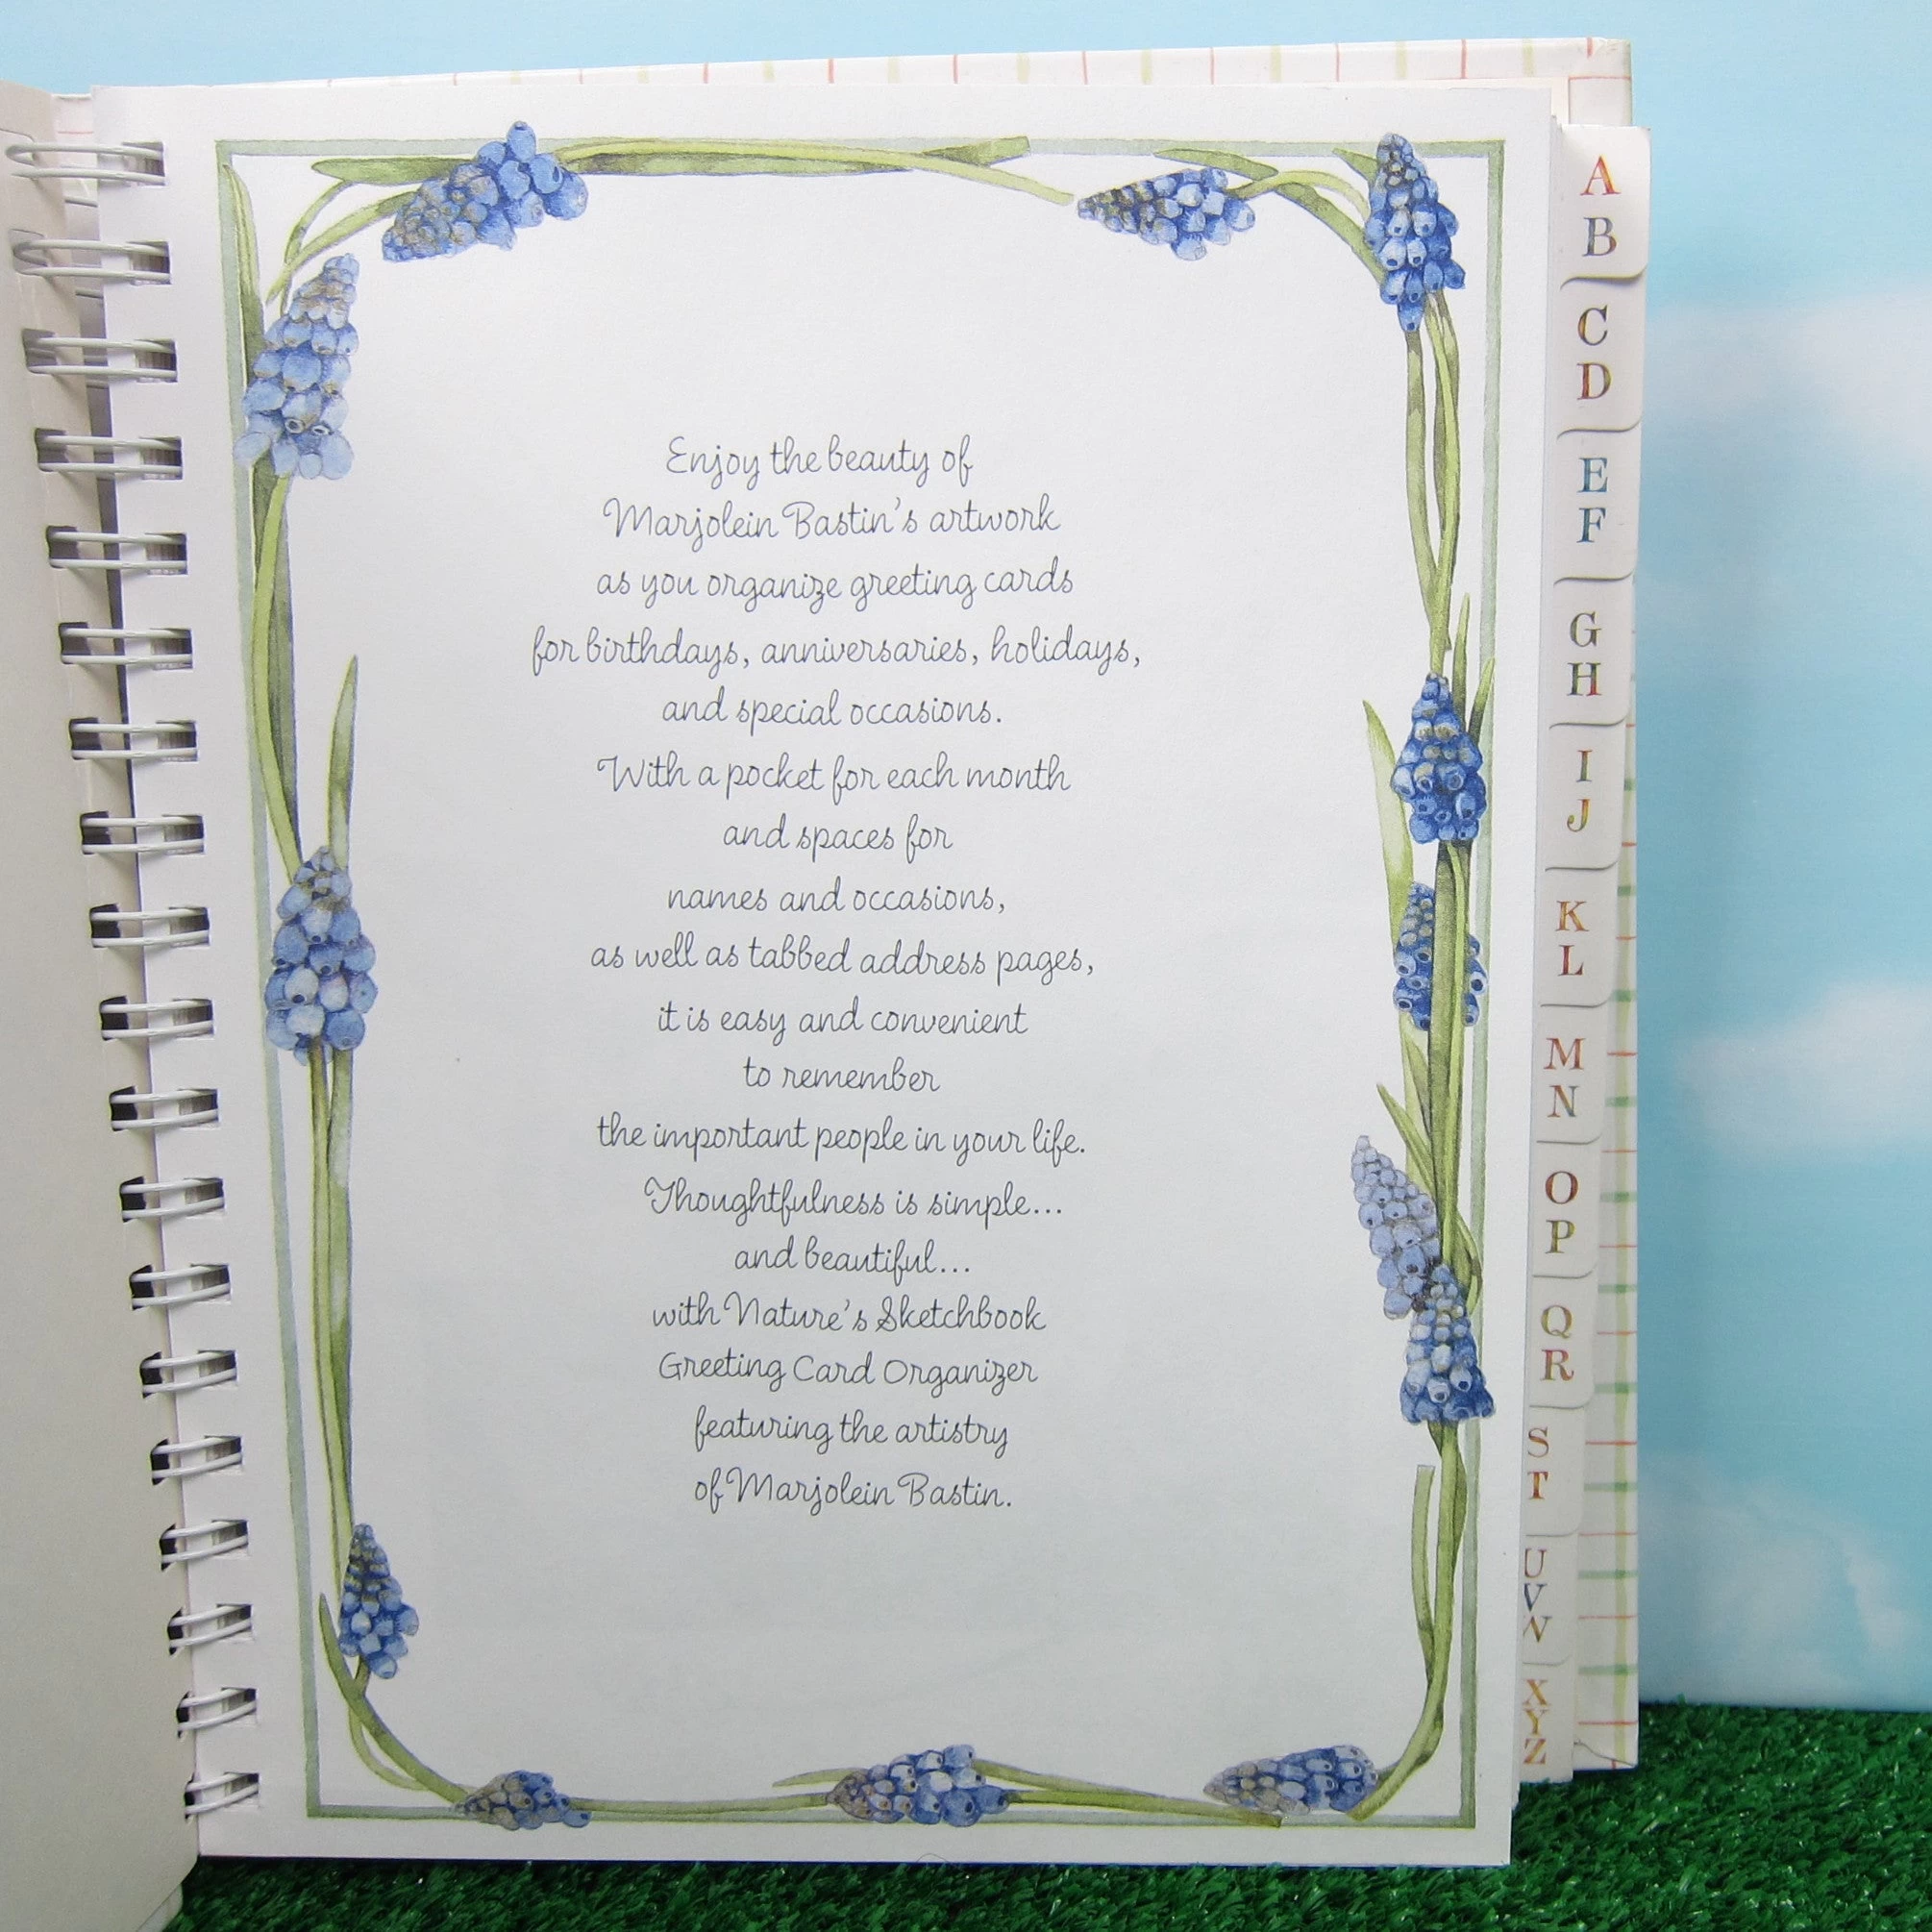 Enjoy the beauty of
Marjolein Bastin's artwork
as you organize greeting cards
for birthdays, anniversaries, holidays,
and special occasions.
With a pocket for each month
and spaces for
names and occasions,
as well as tabbed address pages,
it is easy and convenient
to remember
the important people in your life.
Thoughtfulness is simple...
and beautiful...
with Nature's Sketchbook
Greeting Card Organizer
featuring the artistry
of Marjolein Bastin.
A
B
C
D
E
F
G
H
I
J
K
L
M
N
O
P
Q
R
S
T
U
V
W
X
Y
Z